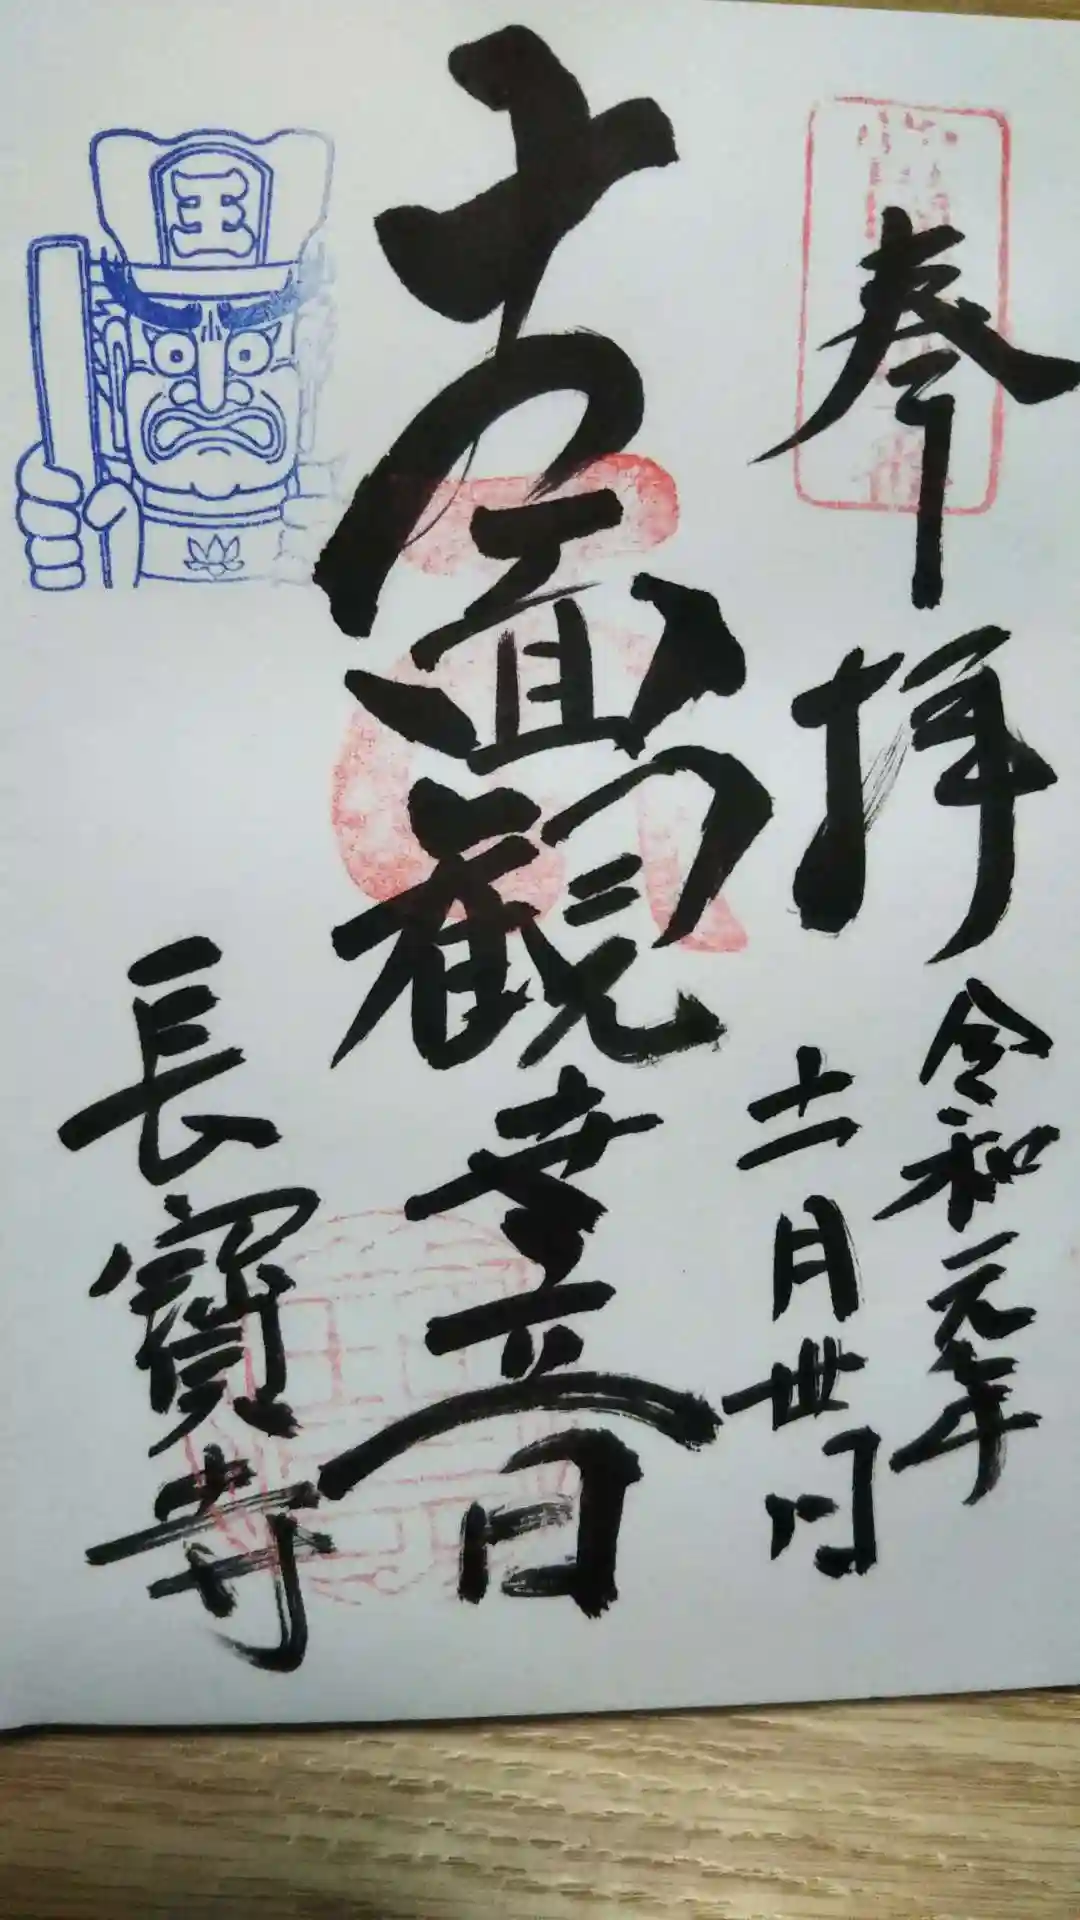 奉拝
令和元年
十一月丗日
十一面観世音
王
長寶寺